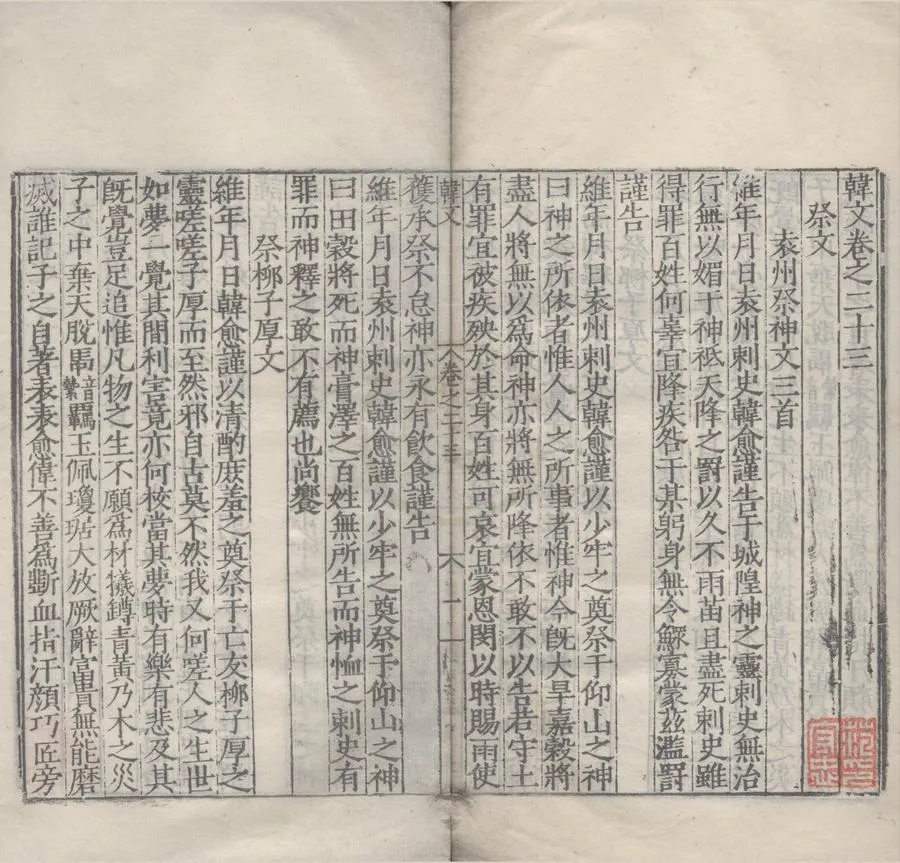 韓文卷之二十三
祭文
袁州祭神文三首
維年月日袁州刺史韓愈謹告于城隍神之靈刺史無治
行無以媚于神祗天降之罸以久不雨苗且盡死刺史雖
得罪百姓何辜宜降疾咎于某躬身無令鰥寡蒙茲濫罸
謹告
維年月日袁州刺史韓愈謹以少牢之奠祭于仰山之神
曰神之所依者惟人人之所事者惟神今旣大旱嘉穀將
盡人將無以爲命神亦將無所降依不敢不以告若守土
有罪宜被疾殃於其身百姓可哀宜蒙恩閔以時賜雨使
韓文 卷之二十三 一
獲承祭不怠神亦永有飲食謹告
維年月日袁州刺史韓愈謹以少牢之奠祭于仰山之神
曰田穀將死而神膏澤之百姓無所告而神恤之刺史有
罪而神釋之敢不有薦也尚饗
祭柳子厚文
維年月日韓愈謹以清酌庶羞之奠祭于亡友柳子厚之
靈嗟嗟子厚而至然邪自古莫不然我又何嗟人之生世
如夢一覺其間利害竟亦何校當其夢時有樂有悲及其
旣覺豈足追惟凡物之生不願爲材犧罇青黃乃木之災
子之中棄天脫馽音縶羈玉佩瓊琚大放厥辭富貴無能磨
滅誰記子之自著表表愈偉不善爲斲血指汗顏巧匠旁